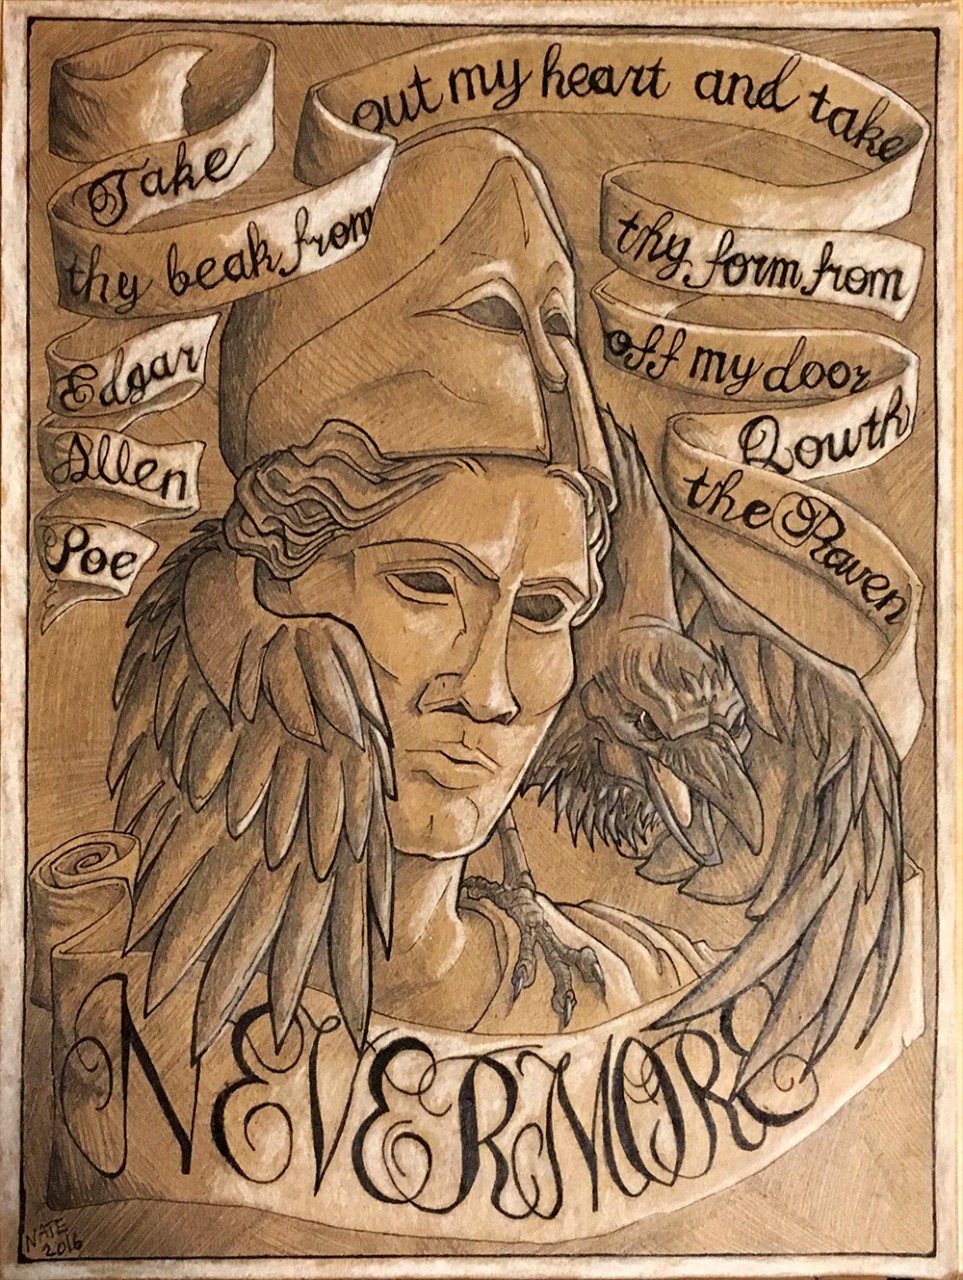 Take
thy beak from
out my heart and take
thy form from
off my door
Qouth
the Raven
NEVERMORE
Edgar
Allen
Poe
NATE
2016